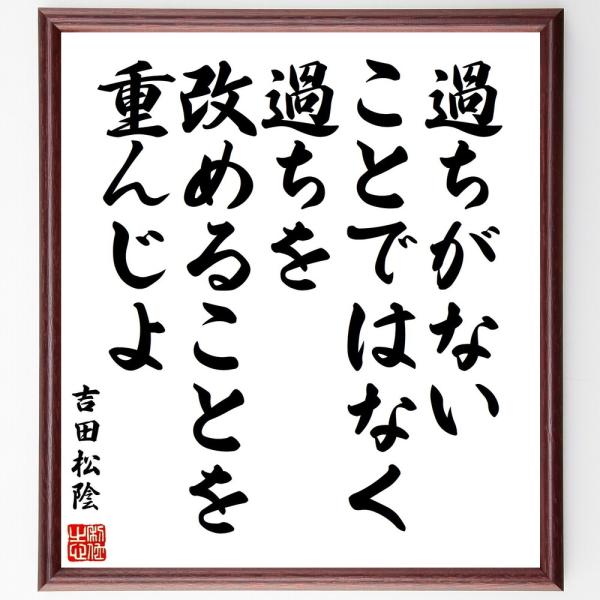 過ちがない
ことではなく
過ちを
改めることを
重んじよ
吉田松陰